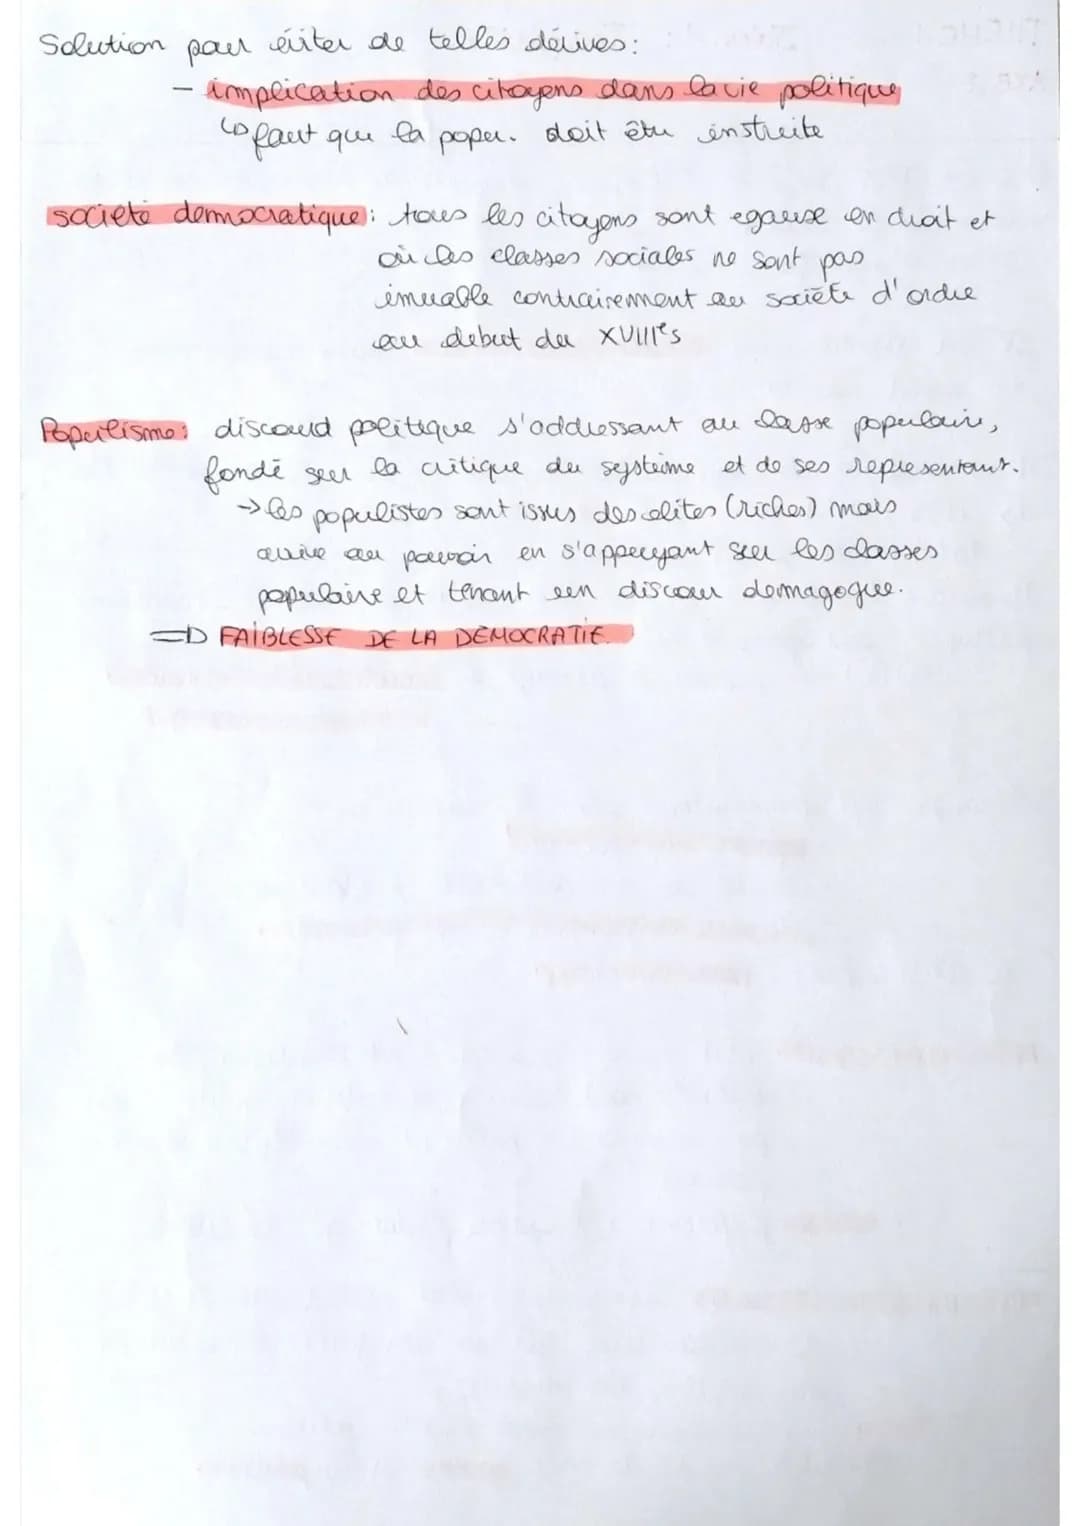 Solution pour éviter de telles dérives:
- implication des citoyens dans la vie politique
↳ faut que la popu. doit être instruite
societé democratique: tous les citoyens sont egause en droit et
où les classes sociales ne sont pas
imuable contrairement au sociéte d'ordre
au debut du XVIIIes
Populisme: discourd politique s'addressant au classe populaire,
fondé sur la critique du systeime et de ses representant.
→ les populistes sont issus des elites (riches) mais
arrive au pouvoir en s'appuyant sur les classes
populaire et tenant un discour demagogue.
=> FAIBLESSE DE LA DÉMOCRATIE.